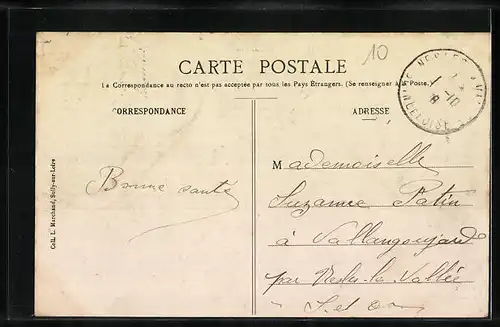 10
CARTE POSTALE
La Correspondance au recto n'est pas acceptée par tous les Pays Étrangers. (Se renseigner à la Poste.)
CORRESPONDANCE
ADRESSE
Bonne santé
Mademoiselle
Suzanne Patin
à Vallangoujard
par Nesles-la-Vallée
S. et O
Coll. L. Marchand, Sully-sur-Loire